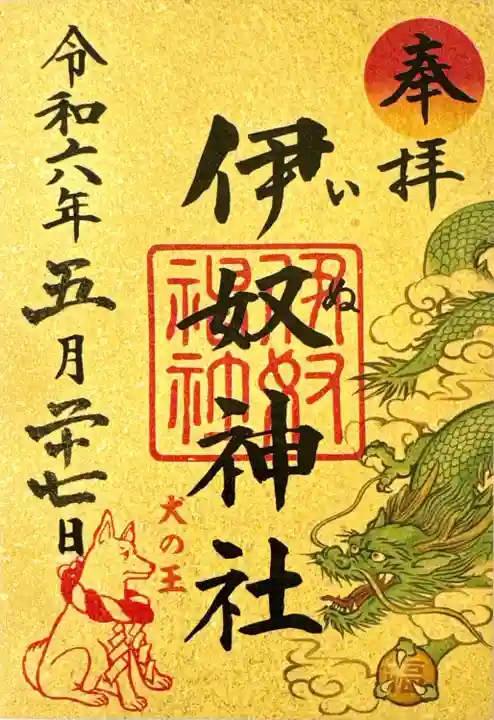 奉拝
伊奴神社
いぬ
伊奴
神社
犬の王
令和六年五月二十七日